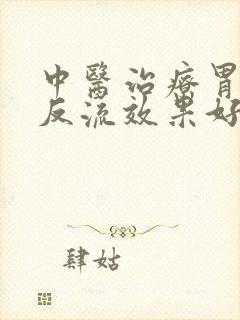 中醫治療胃
反流效果好
肆姑